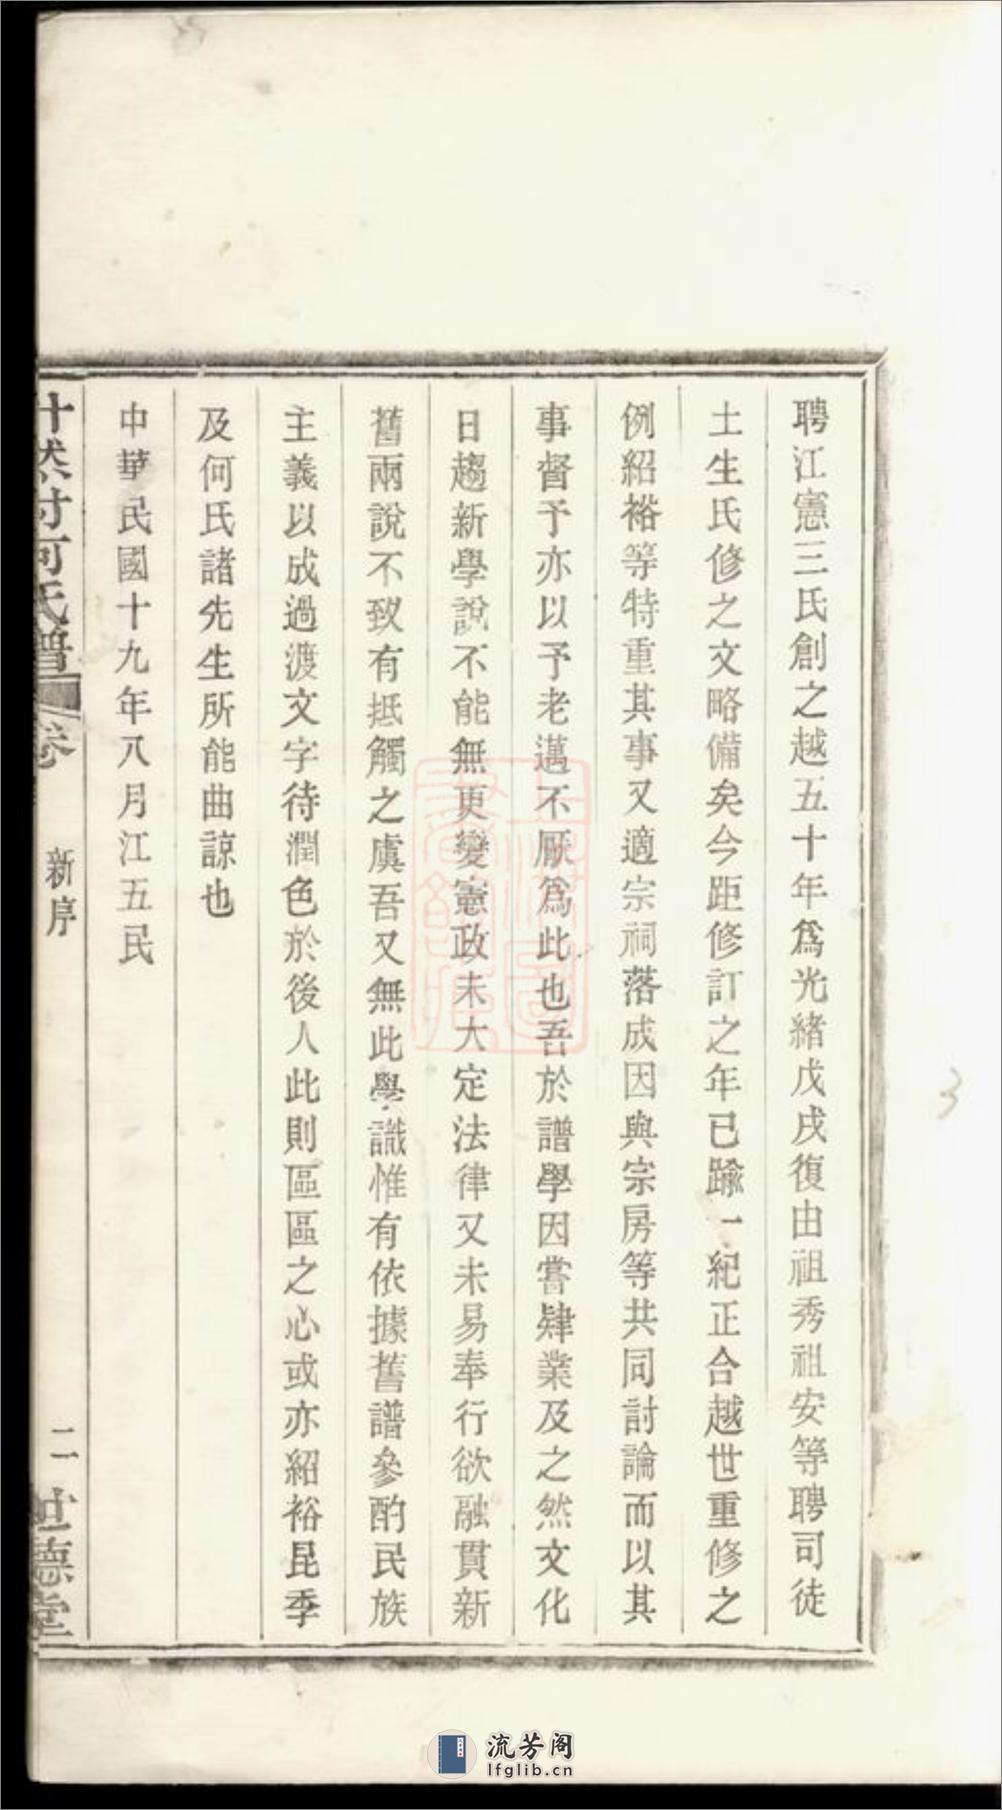 聘江憲三氏創之越五十年爲光緒戊戌復由祖秀祖安等聘司徒
土生氏修之文略備矣今距修訂之年已踰一紀正合越世重修之
例紹裕等特重其事又適宗祠落成因與宗房等共同討論而以其
事督予亦以予老邁不厭爲此也吾於譜學因嘗肄業及之然文化
日趨新學說不能無更變憲政未大定法律又未易奉行欲融貫新
舊兩說不致有抵觸之虞吾又無此學識惟有依據舊譜參酌民族
主義以成過渡文字待潤色於後人此則區區之心或亦紹裕昆季
及何氏諸先生所能曲諒也
中華民國十九年八月江五民
村何氏譜 卷 新序 二 世德堂
3
流芳阁
lfglib.cn